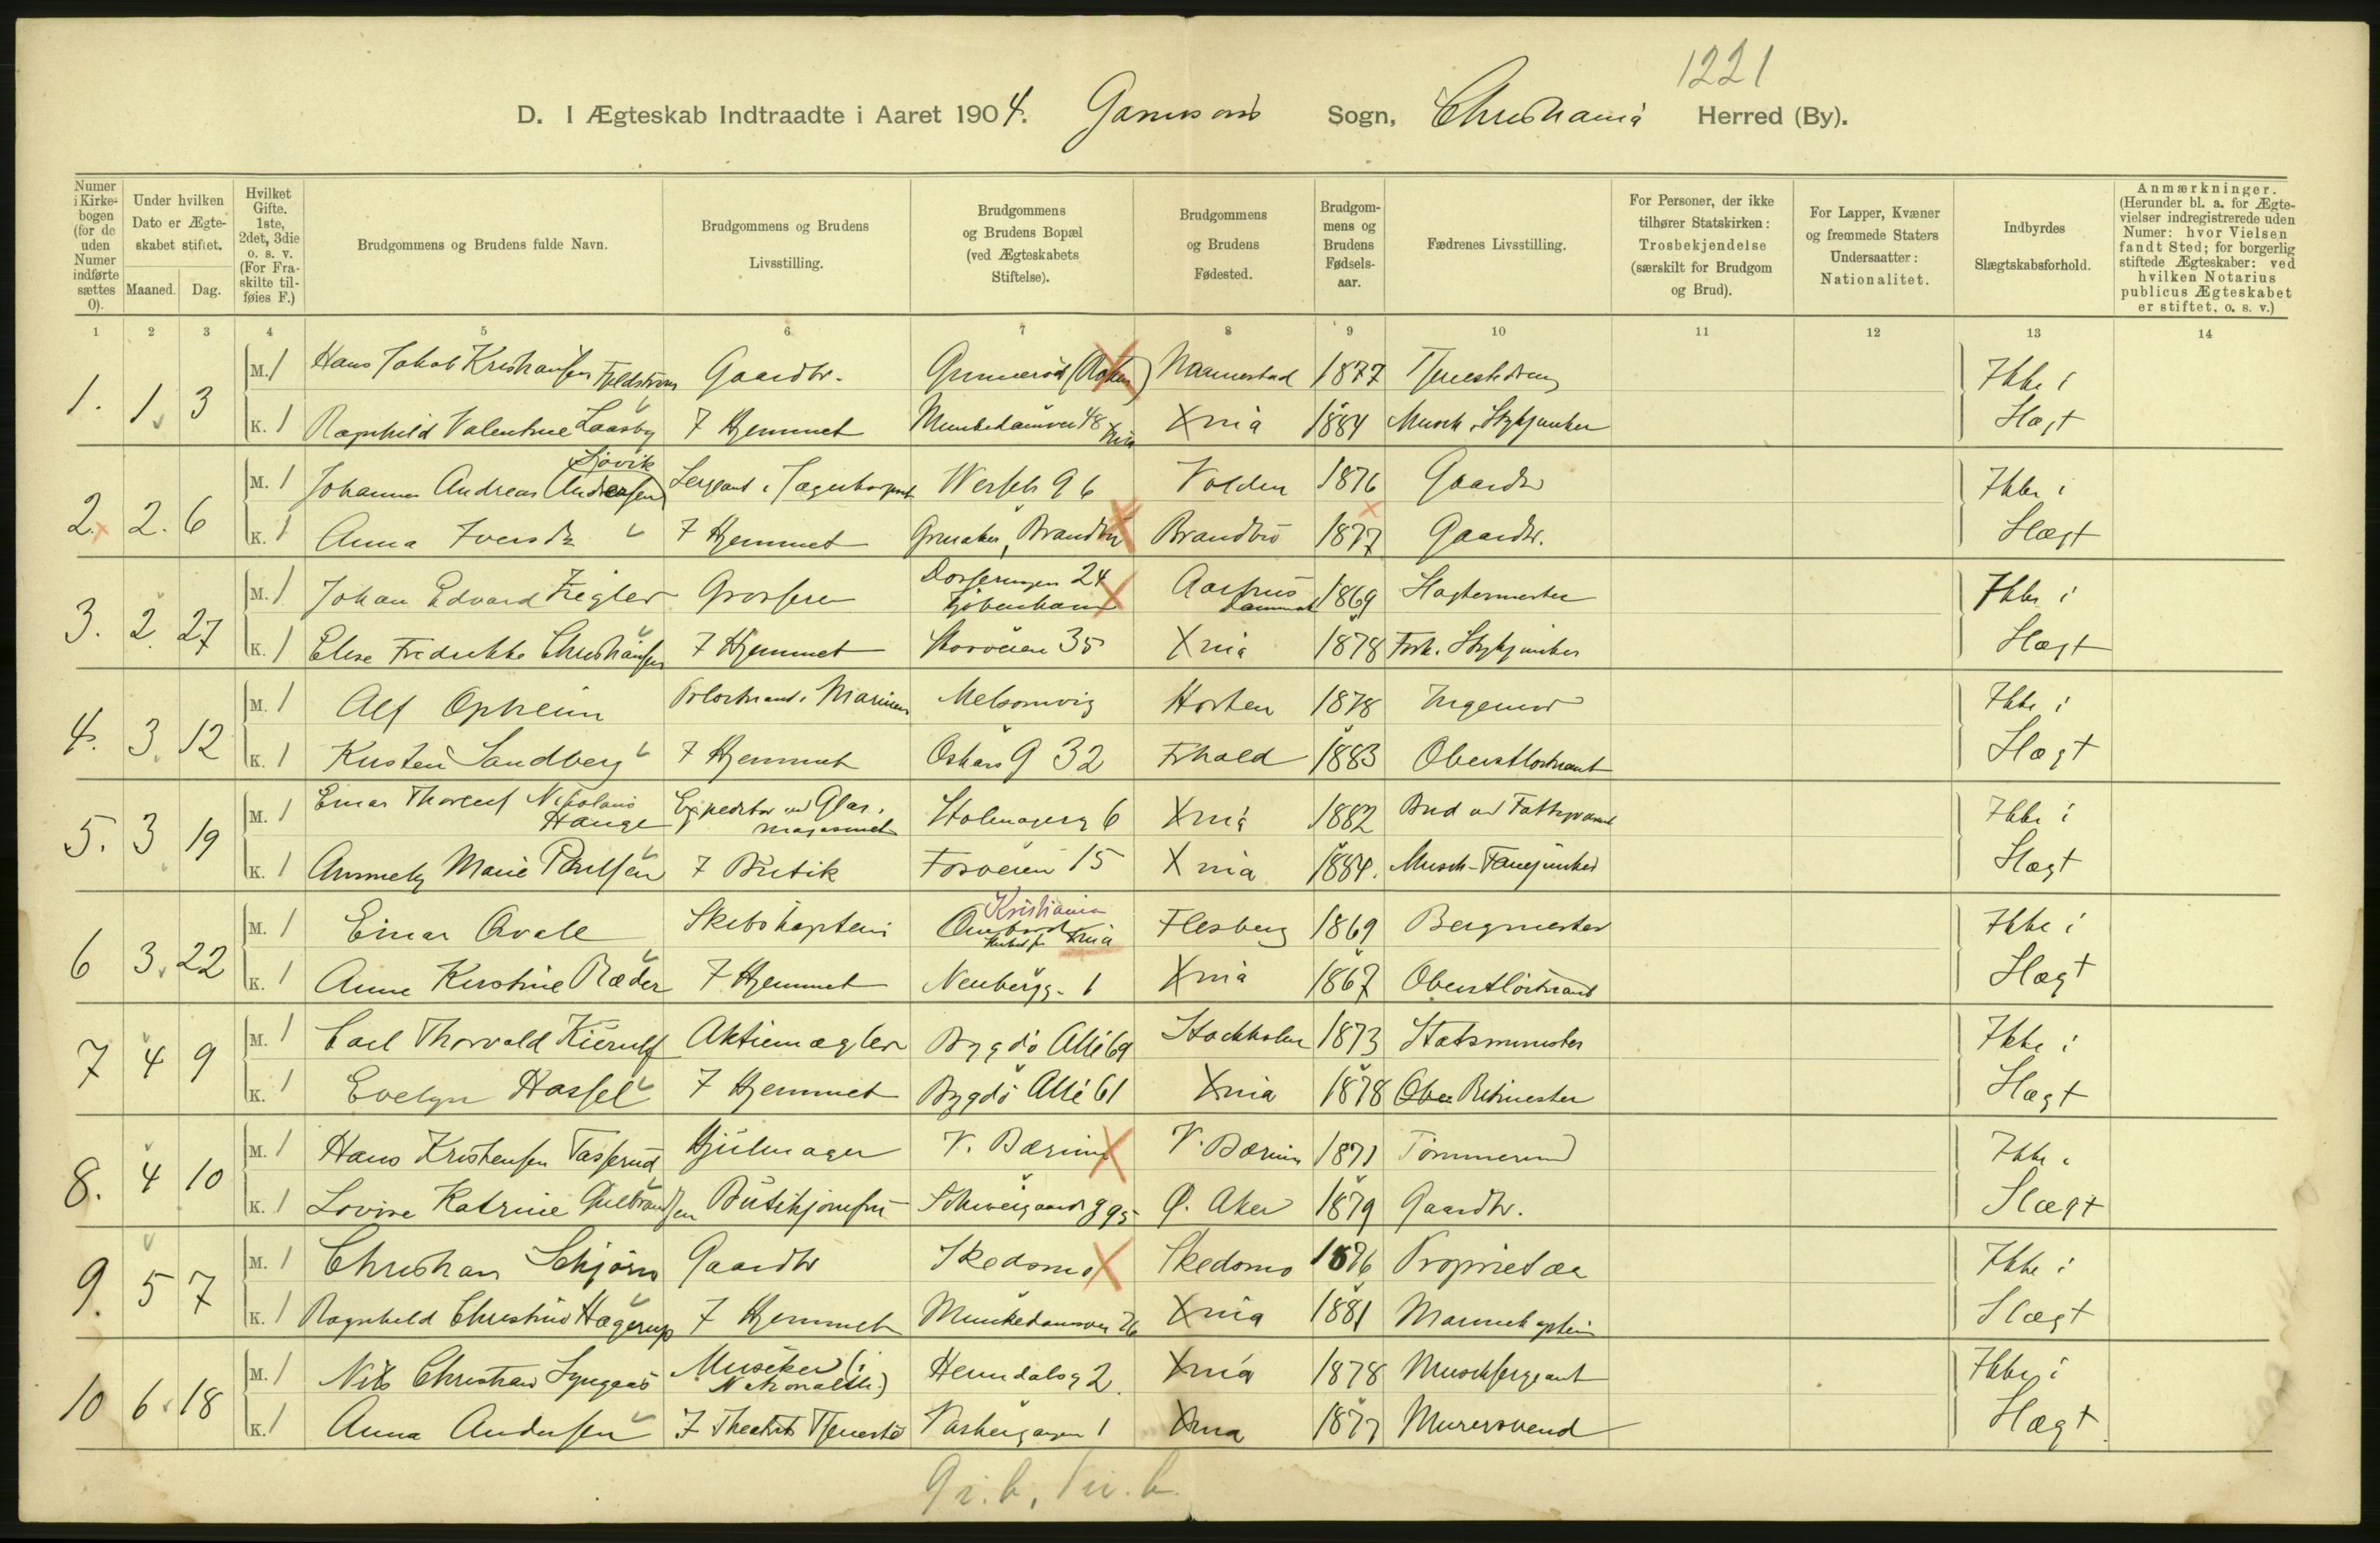 1221
D. I Ægteskab Indtraadte i Aaret 1904. Garnisons Sogn, Christiania Herred (By).
Numer i Kirkebogen (for de uden Numer indførte sættes 0).
Under hvilken Dato er Ægteskabet stiftet.
Maaned. Dag.
Hvilket Gifte. 1ste, 2det, 3die o. s. v. (For Fraskilte tilføies F.)
Brudgommens og Brudens fulde Navn.
Brudgommens og Brudens Livsstilling.
Brudgommens og Brudens Bopæl (ved Ægteskabets Stiftelse).
Brudgommens og Brudens Fødested.
Brudgommens og Brudens Fødselsaar.
Fædrenes Livsstilling.
For Personer, der ikke tilhører Statskirken: Trosbekjendelse (særskilt for Brudgom og Brud).
For Lapper, Kvæner og fremmede Staters Undersaatter: Nationalitet.
Indbyrdes Slægtskabsforhold.
Anmærkninger. (Herunder bl. a. for Ægtevielser indregistrerede uden Numer: hvor Vielsen fandt Sted; for borgerlig stiftede Ægteskaber: ved hvilken Notarius publicus Ægteskabet er stiftet, o. s. v.)
1 2 3 4 5 6 7 8 9 10 11 12 13 14
1. 1. 3 M. 1 Hans Jakob Kristiansen Fjeldstrøm Gaardbr. 1877 Ikke i
K. 1 Ragnhild Valentine Laasby I Hjemmet Munkedamsvei 48 Xnia Xnia 1884 Musik. Stykjunker Slægt
2. 2. 6 M. 1 Johannes Andreas (Andreassen) Sjøvik Sergeant i Jægerkorpset Wessels g 6 Volden 1876 Gaardbr Ikke i
K. 1 Anna Iversdr I Hjemmet Grinaker, Brandbu Brandbu 1877 Gaardbr. Slægt
3. 2. 27 M. 1 Johan Edvard Ziegler Grosserer Dosseringen 24 Kjøbenhavn Aarhus Danmark 1869 Slagtermester Ikke i
K. 1 Elise Fredrikke Christiansen I Hjemmet Storoveien 35 Xnia 1878 Fork. Stykjunker Slægt
4. 3. 12 M. 1 Alf Opheim Pr.løitnant i Marinen Melsomvig Horten 1878 Ingeniør Ikke i
K. 1 Kirsten Sandberg I Hjemmet Oskars g 32 Frhald 1883 Oberstløitnant Slægt
5. 3 19 M. 1 Einar Thorleif Nikolaus Hauge Expeditør ved Glasmagasinet Holmagerg 6 Xnia 1882 Bud ved Fattigvæsnet Ikke i
K. 1 Marie Paulsen I Butik Fosveien 15 Xnia 1884. Musik-Fanejunker Slægt
6 3. 22 M. 1 Einar Qvale Skibskaptein Kristiania Xnia Flesberg 1869 Bergmester Ikke i
K. 1 Anne Kirstine Ræder I Hjemmet Neubergg. 1 Xnia 1867 Oberstløitnant Slægt
7 4 9 M. 1 Carl Thorvald Kierulf Aktiemægler Bygdø Allé 69 Stockholm 1873 Statsminister Ikke i
K. 1 Evelyn Hassel I Hjemmet Bygdø Allé 61 Xnia 1878 Ritmester Slægt
8. 4 10 M. 1 Hans Kristensen Tasserud Hjulmager V. Bærum V. Bærum 1871 Tømmermand Ikke i
K. 1 Lovise Katrine Gulbrandsen Butikjomfru Schweigaards g 95 Ø. Aker 1879 Gaardbr. Slægt
9. 5 7 M. 1 Christian Schjørn Gaardbr Skedsmo Skedsmo 1876 Proprietær Ikke i
K. 1 Ragnhild Christine Hagerup I Hjemmet Munkedamsvei 26 Xnia 1881 Marinekaptein Slægt
10 6. 18 M. 1 Nils Christian Lyngaas Musiker (i Nationalth.) Heimdalsg 2. Xnia 1878 Musiksergeant Ikke i
K. 1 Anna Andersen I Theatrets Tjeneste 1 Xnia 1877 Murersvend Slægt